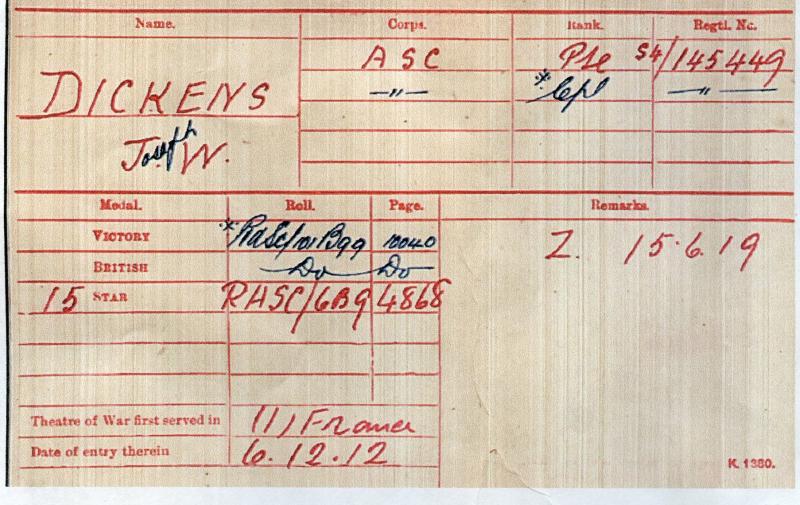 Name. Corps. Rank. Regtl. No.
DICKENS A S C Pte S4/145449
Joseph W. —〃— * Cpl —〃—
Medal. Roll. Page. Remarks.
VICTORY * RASC/101B99 10040 Z. 15.6.19
BRITISH Do Do
15 STAR RASC/6B9 4868
Theatre of War first served in (1) France
Date of entry therein 6.12.12
K. 1380.